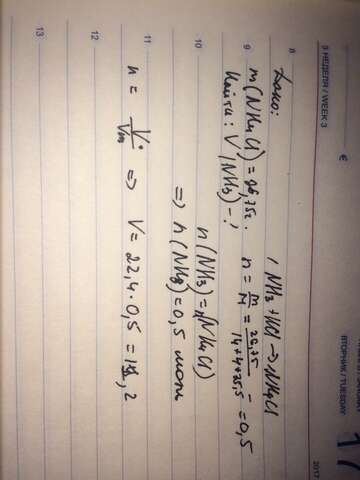 5 НЕДЕЛЯ / WEEK 3
ВТОРНИК / TUESDAY
17
2017
Дано:
m(NH4Cl) = 26,75г.
Найти: V(NH3) - ?
NH3 + HCl → NH4Cl
n = m/M = 26,75/14+4+35,5 = 0,5
n(NH3) = n(NH4Cl)
=> n(NH3) = 0,5 моль
n = V/Vm => V = 22,4 · 0,5 = 11,2
8
9
10
11
12
13